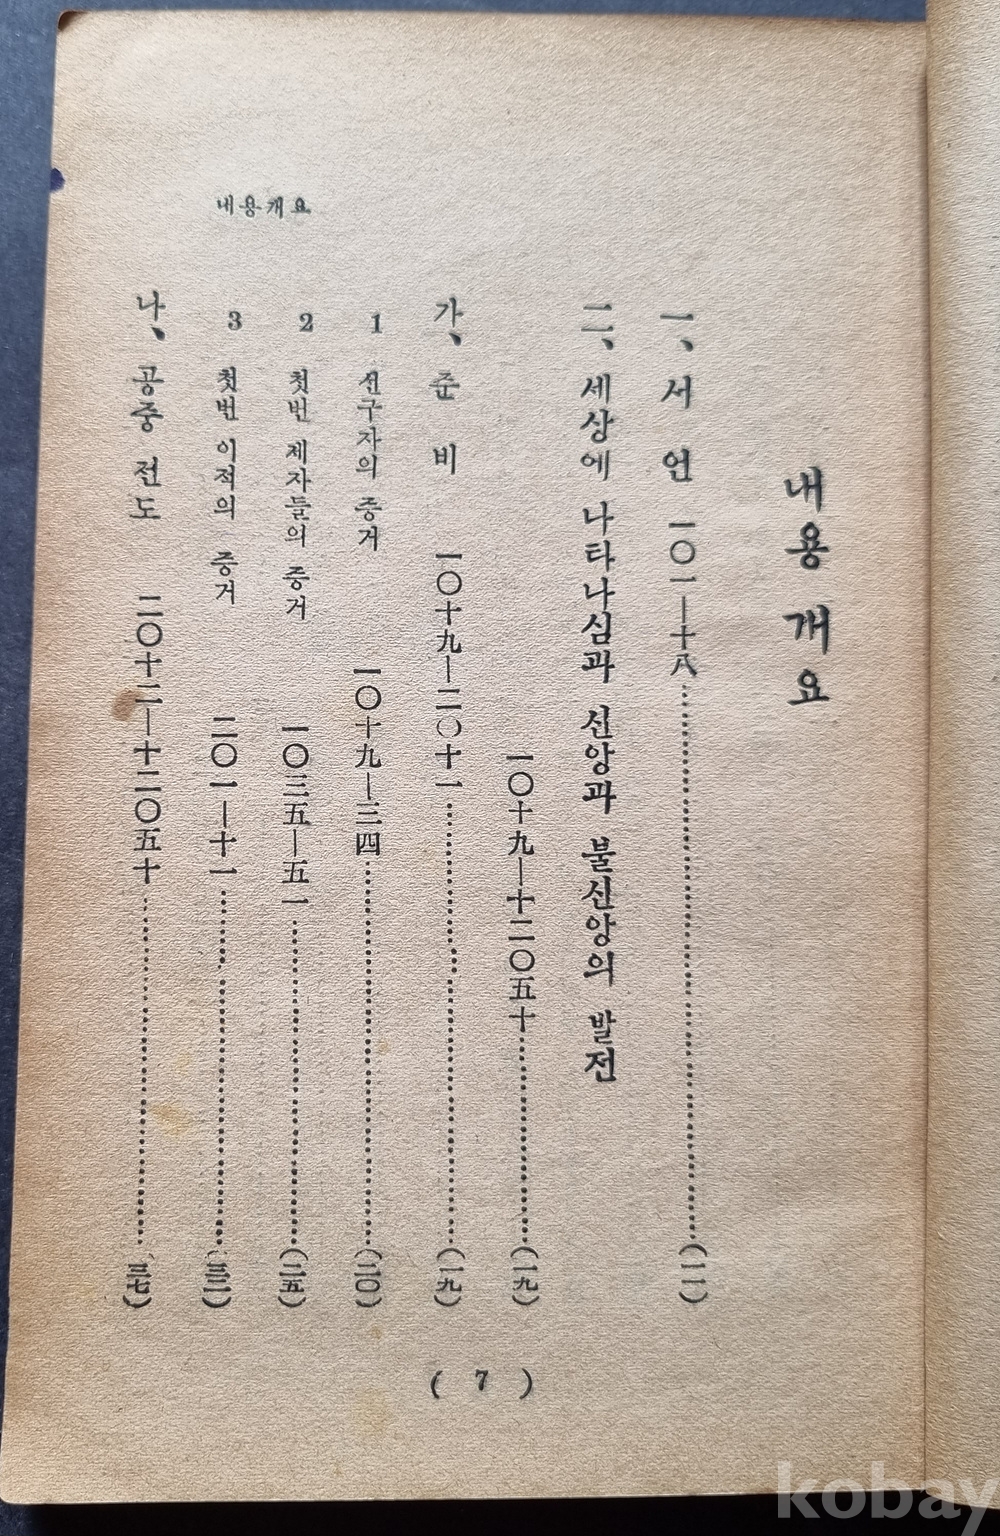 내용 개요
一、서 언 一〇一—十八……(一一)
二、세상에 나타나심과 신앙과 불신앙의 발전
一〇十九—十二〇五十……(一九)
가、준 비 一〇十九—二〇十一……(一九)
1 선구자의 증거 一〇十九—三四……(二〇)
2 첫번 제자들의 증거 一〇三五—五一……(二五)
3 첫번 이적의 증거 二〇一—十一……(三二)
나、공중 전도 二〇十二—十二〇五十……(三七)
내용개요
( 7 )
kobay